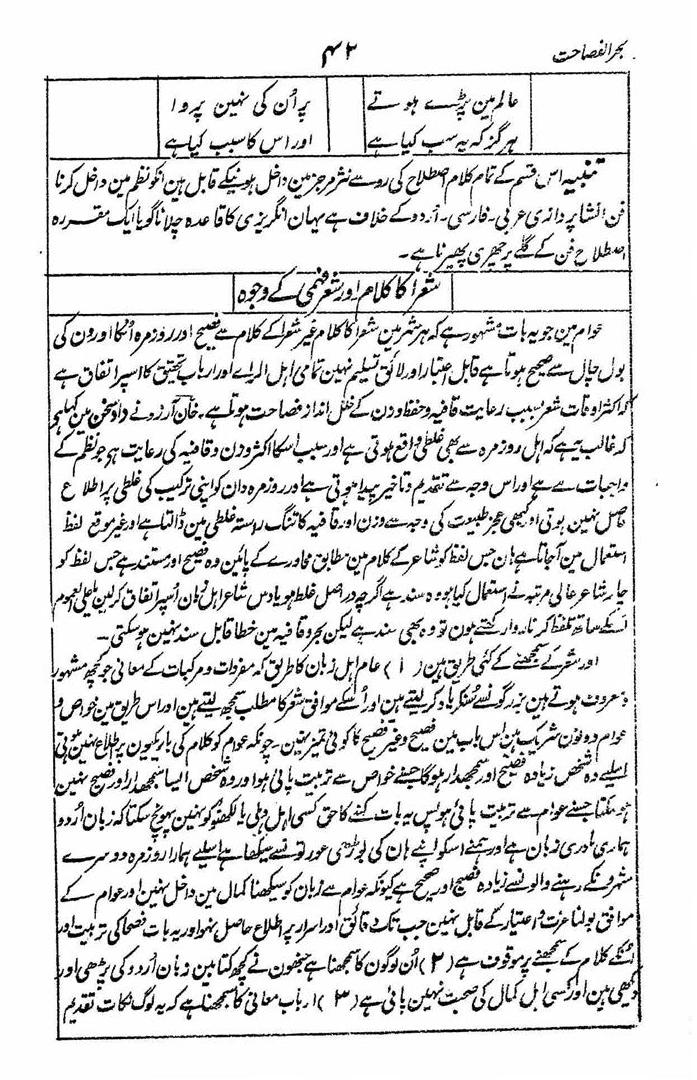 بحر الفصاحت
۴۲
عالم مین پڑے ہوتے پر اُن کی نہین پروا
ہرگز کہ یہ سب کیا ہے اور اس کا سبب کیا ہے
تنبیہ اس قسم کے تمام کلام اصطلاح کی روسے نثر مرجز مین داخل ہونیکے قابل ہین انکو نظم مین داخل کرنا
فن انشا پردازی عربی۔ فارسی۔ اُردو کے خلاف ہے یہان انگریزی کا قاعدہ چلانا گویا ایک مقررہ
اصطلاح فن کے گلے پر چھری پھیرنا ہے۔
شعرا کا کلام اور شعر فہمی کے وجوہ
عوام مین جو یہ بات مشہور ہے کہ ہر شہر مین شعرا کا کلام غیر شعرا کے کلام سے فصیح اور روزمرہ اُنکا اورون کی
بول چال سے صحیح ہوتا ہے قابل اعتبار اور لائق تسلیم نہین تمامی اہل الراے اور ارباب تحقیق کا اسپر اتفاق ہے
کہ اکثر اوقات شعر بسبب رعایت قافیہ و حفظ وزن کے خلل انداز فصاحت ہوتا ہے۔ خان آرزو نے داد سخن مین کہا ہے
کہ غالب یہ ہے کہ اہل روزمرہ سے بھی غلطی واقع ہوتی ہے اور سبب اسکا اکثر وزن و قافیہ کی رعایت ہے جو نظم کے
واجبات سے ہے اور اس وجہ سے تقدیم و تاخیر پیدا ہوتی ہے اور روزمرہ دان کو اپنی ترکیب کی غلطی پر اطلاع
حاصل نہین ہوتی اور کبھی عجز طبیعت کی وجہ سے وزن اور قافیہ کا تنگ راستہ غلطی مین ڈالتا ہے اور غیر موقع لفظ
استعمال مین آجاتا ہے ہان جس لفظ کو شاعر کے کلام مین مطابق محاورے کے پائین وہ فصیح اور مستند ہے جس لفظ کو
چار شاعر عالی مرتبہ نے استعمال کیا ہو وہ سند ہے اگرچہ دراصل غلط ہو یا دس شاعر اہل زبان اُسپر اتفاق کرلین یا علی العموم
اسکے ساتھ تلفظ کرنا روا رکھتے ہون تو وہ بھی سند ہے لیکن بحر و قافیہ مین خطا قابل سند نہین ہوسکتی۔
اور شعر کے سمجھنے کے کئی طریق ہین (۱) عام اہل زبان کا طریق کہ مفردات و مرکبات کے معانی جو کچھ مشہور
و معروف ہوتے ہین بزرگونسے سُنکر یاد کرلیتے ہین اور اُسکے موافق شعر کا مطلب سمجھ لیتے ہین اور اس طریق مین خواص و
عوام دونون شریک ہین اس باب مین فصیح و غیر فصیح کا کوئی تمیز نہین۔ چونکہ عوام کو کلام کی باریکیون پر اطلاع نہین ہوتی
اسلیے وہ شخص زیادہ فصیح اور سمجھدار ہوگا جسنے خواص سے تربیت پائی ہو اور وہ شخص ایسا سمجھدار اور فصیح نہین
ہوسکتا جسنے عوام سے تربیت پائی ہو پس یہ بات کہنے کا حق کسی اہل دہلی یا لکھنؤ کو نہین پہونچ سکتا کہ زبان اُردو
ہماری مادری زبان ہے اور ہمنے اسکو اپنے ہان کی بوڑھی عورتونسے سیکھا ہے اسلیے ہمارا روزمرہ دوسرے
شہرونکے رہنے والونسے زیادہ فصیح اور صحیح ہے کیونکہ عوام سے زبان کو سیکھنا کمال مین داخل نہین اور عوام کے
موافق بولنا عزت و اعتبار کے قابل نہین جب تک دقائق اور اسرار پر اطلاع حاصل نہو اور یہ بات فصحا کی تربیت اور
اُنکے کلام کے سمجھنے پر موقوف ہے (۲) اُن لوگون کا سمجھنا ہے جنھون نے کچھ کتابین زبان اُردو کی پڑھی اور
دیکھی ہین اور کسی اہل کمال کی صحبت نہین پائی ہے (۳) ارباب معانی کا سمجھنا ہے کہ یہ لوگ نکات تقدیم